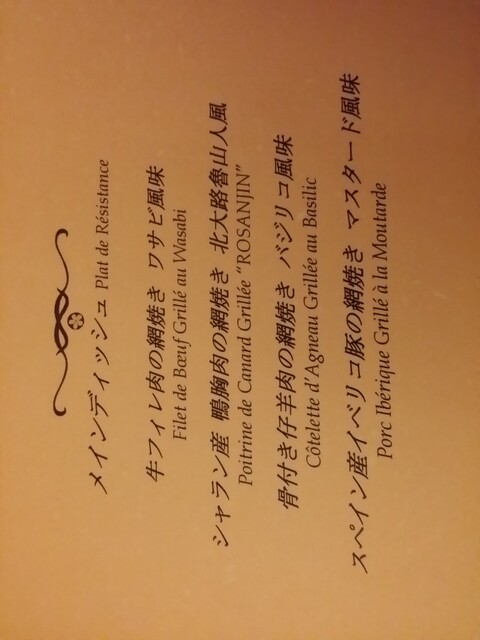 メインディッシュ Plat de Résistance
牛フィレ肉の網焼き ワサビ風味
Filet de Bœuf Grillé au Wasabi
シャラン産 鴨胸肉の網焼き 北大路魯山人風
Poitrine de Canard Grillée "ROSANJIN"
骨付き仔羊肉の網焼き バジリコ風味
Côtelette d'Agneau Grillée au Basilic
スペイン産イベリコ豚の網焼き マスタード風味
Porc Ibérique Grillé à la Moutarde